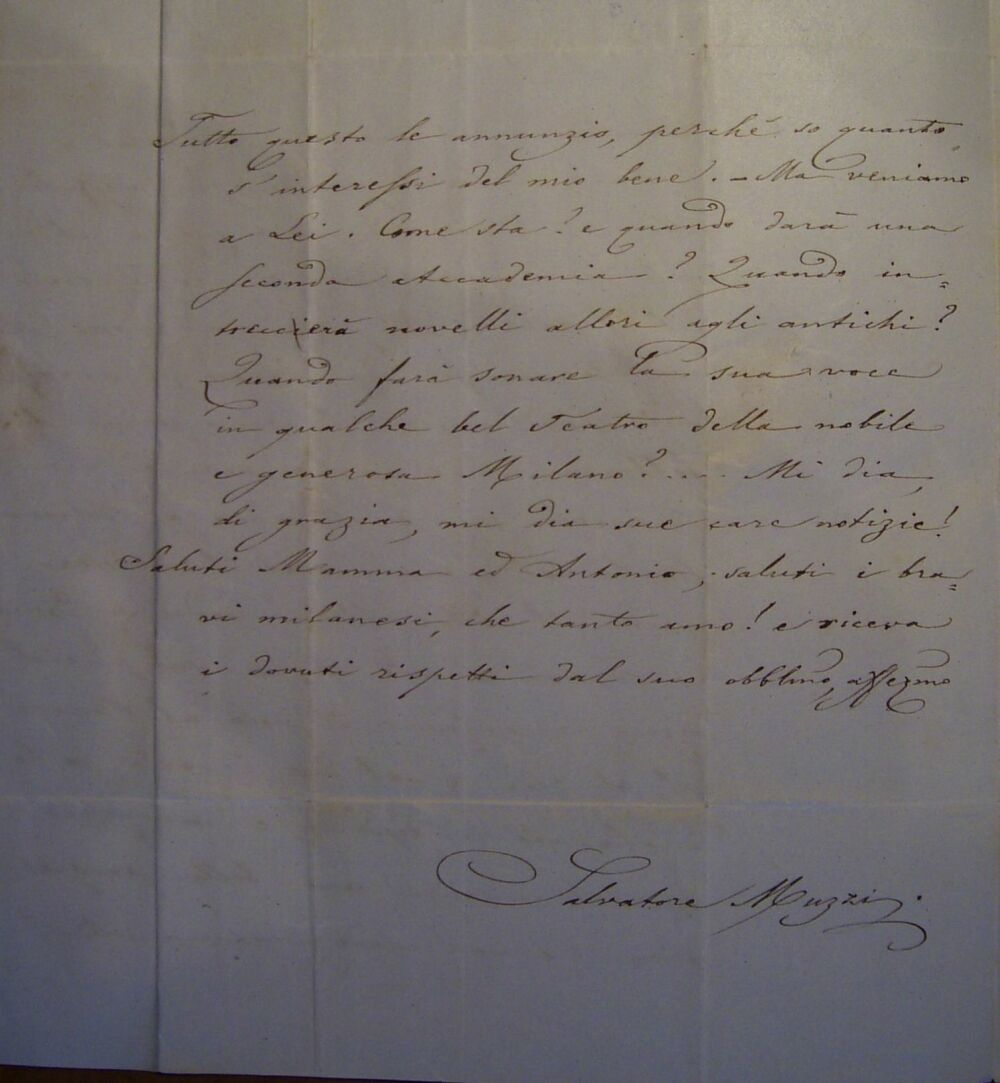 Tutto questo le annunzio, perchè so quanto
s'interessi del mio bene. – Ma veniamo
a Lei. Come sta? e quando darà una
seconda Accademia? Quando in=
treccierà novelli allori agli antichi?
Quando farà sonare la sua voce
in qualche bel Teatro della nobile
e generosa Milano?.... Mi dia,
di grazia, mi dia sue care notizie!
Saluti Mamma ed Antonio; saluti i bra=
vi milanesi, che tanto amo! e riceva
i dovuti rispetti dal suo obblmo, affezmo
Salvatore Muzzi.